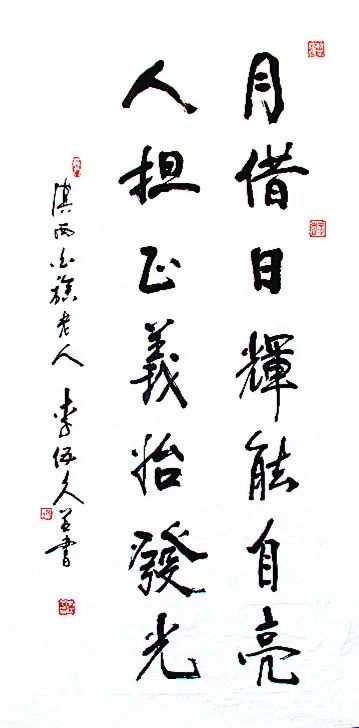 月借日輝能自亮
人担正義怡發光
滇西白族老人 李伍久 书書